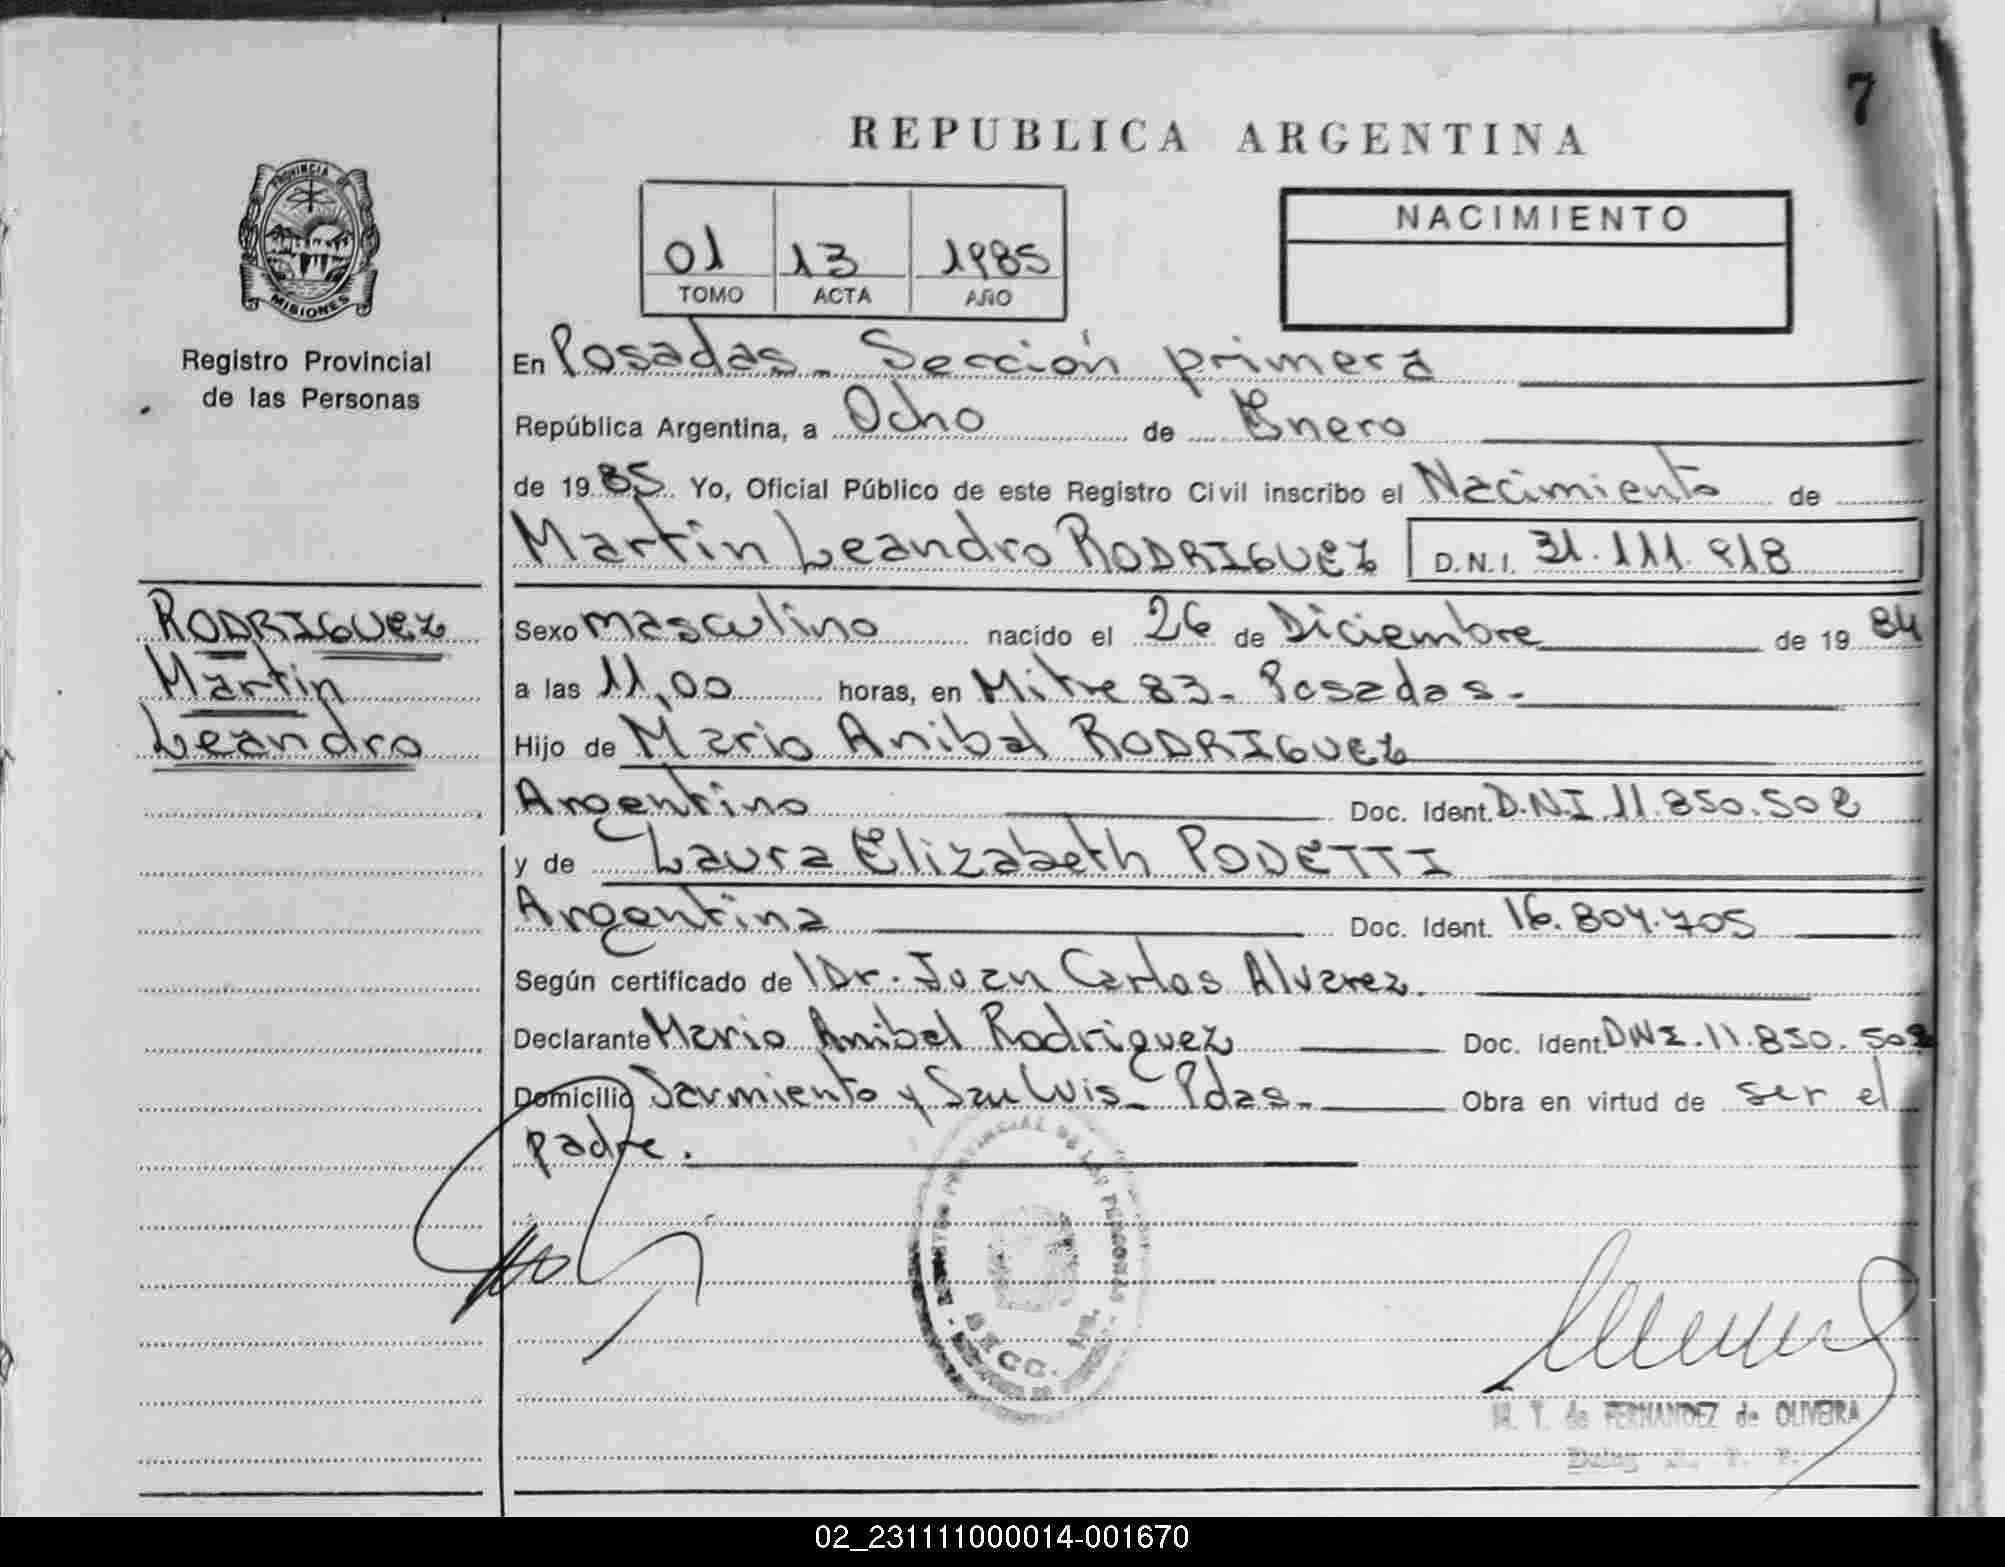 7
REPUBLICA ARGENTINA
PROVINCIA DE
MISIONES
Registro Provincial
de las Personas
01 13 1985
TOMO ACTA AÑO
NACIMIENTO
En Posadas - Sección primera
República Argentina, a Ocho de Enero
de 1985 Yo, Oficial Público de este Registro Civil inscribo el Nacimiento de
Martin Leandro RODRIGUEZ D.N.I. 31.111.918
RODRIGUEZ
Martin
Leandro
Sexo masculino nacido el 26 de Diciembre de 1984
a las 11,00 horas, en Mitre 83 - Posadas -
Hijo de Mario Anibal RODRIGUEZ
Argentino Doc. Ident. D.N.I. 11.850.502
y de Laura Elizabeth PODETTI
Argentina Doc. Ident. 16.804.705
Según certificado de Dr. Juan Carlos Alvarez.
Declarante Mario Anibal Rodriguez Doc. Ident. DNI. 11.850.502
Domicilio Sarmiento y San Luis - Pdas - Obra en virtud de ser el
padre.
PROVINCIAL DE LAS PERSONAS
M. T. de FERNANDEZ de OLIVEIRA
02_231111000014-001670